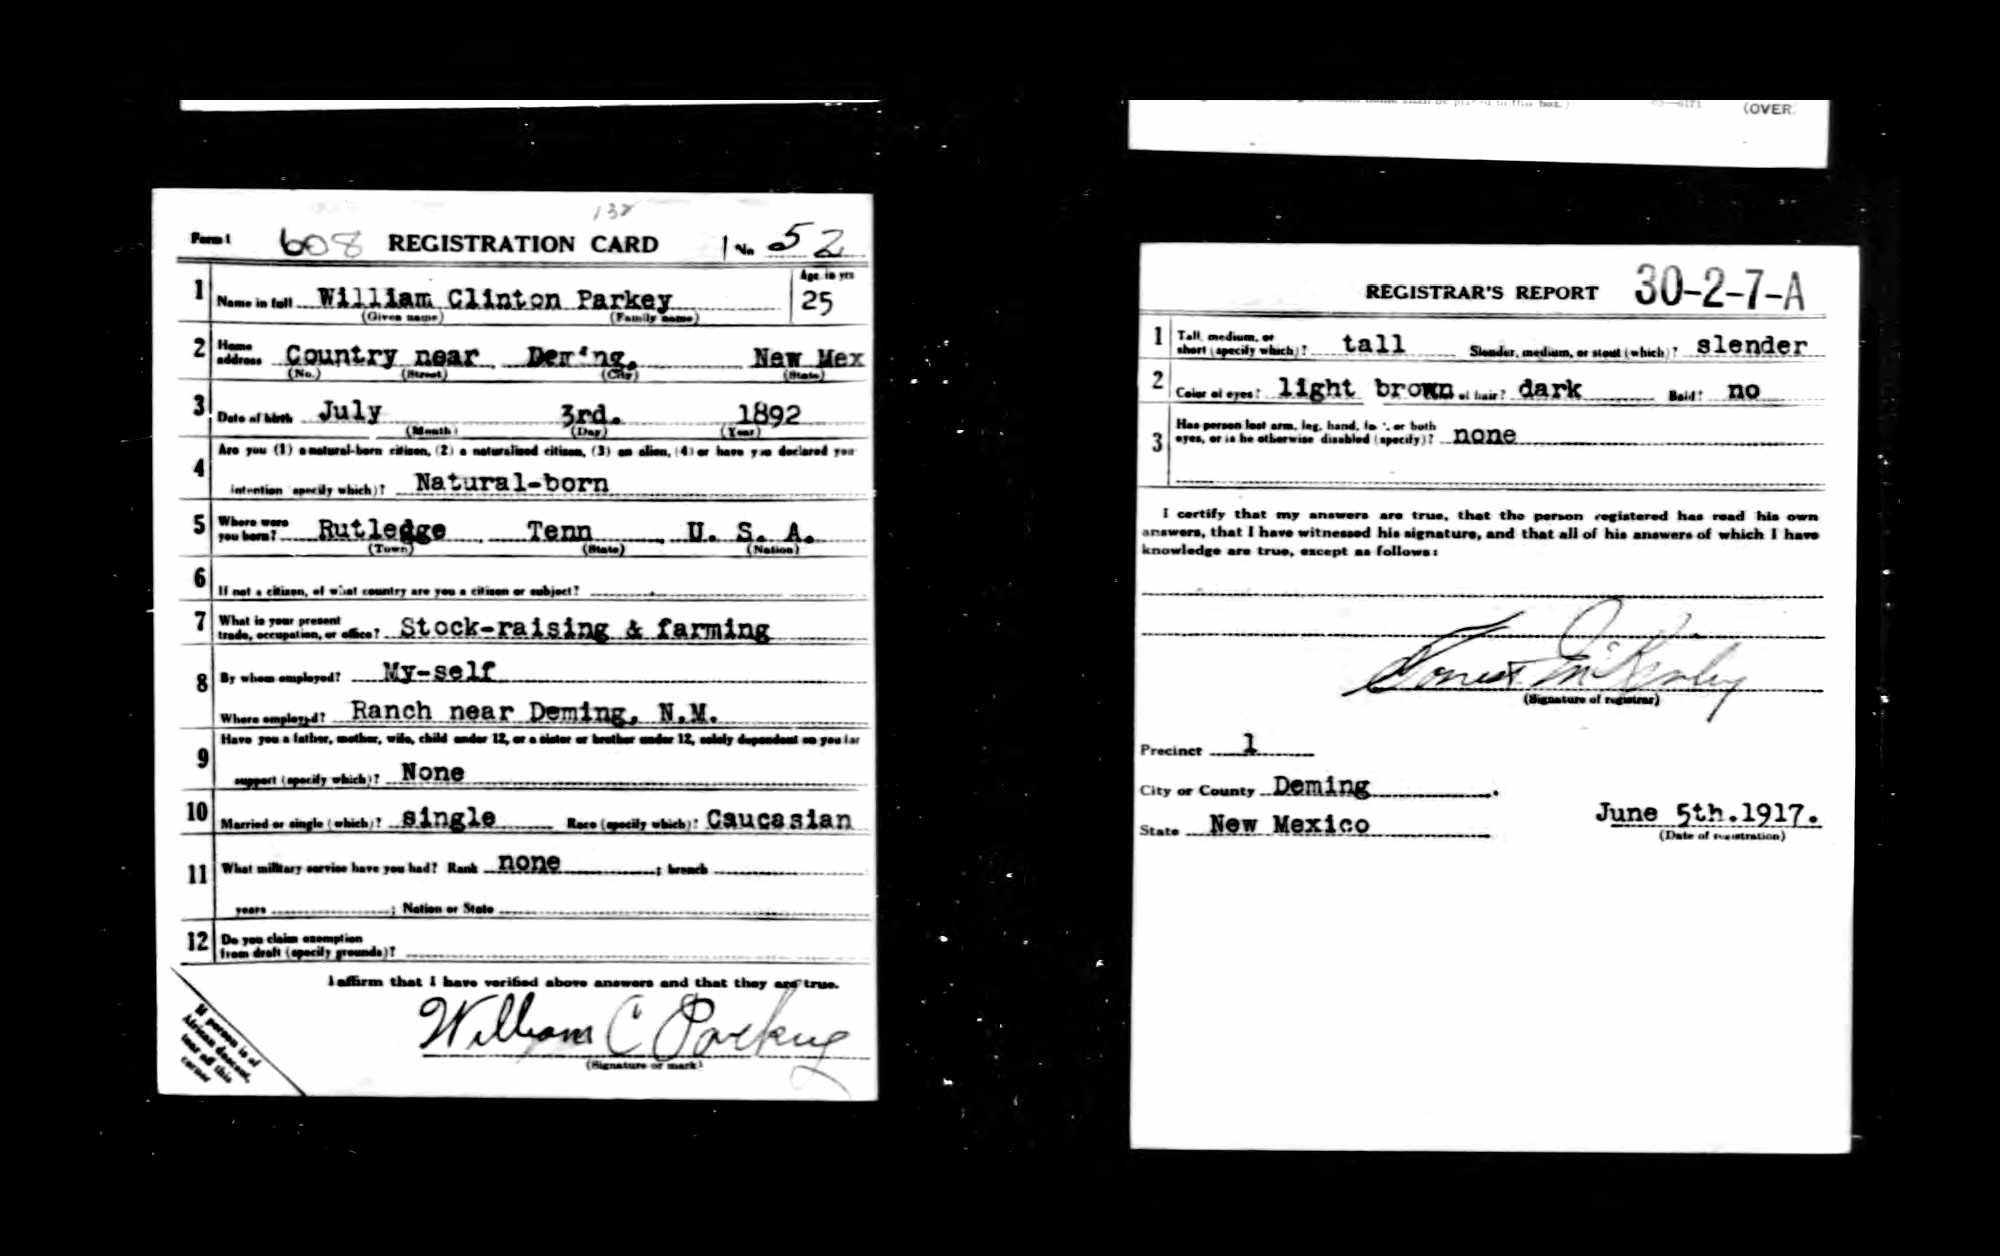 138
Form 1 608 REGISTRATION CARD No. 52
1 Name in full William Clinton Parkey Age, in yrs 25
(Given name) (Family name)
2 Home address Country near Deming, New Mex
(No.) (Street) (City) (State)
3 Date of birth July 3rd. 1892
(Month) (Day) (Year)
4 Are you (1) a natural-born citizen, (2) a naturalized citizen, (3) an alien, (4) or have you declared your
intention (specify which)? Natural-born
5 Where were you born? Rutledge Tenn U. S. A.
(Town) (State) (Nation)
6 If not a citizen, of what country are you a citizen or subject?
7 What is your present trade, occupation, or office? Stock-raising & farming
8 By whom employed? My-self
Where employed? Ranch near Deming, N.M.
9 Have you a father, mother, wife, child under 12, or a sister or brother under 12, solely dependent on you for
support (specify which)? None
10 Married or single (which)? single Race (specify which)? Caucasian
11 What military service have you had? Rank none ; branch
years ; Nation or State
12 Do you claim exemption from draft (specify grounds)?
I affirm that I have verified above answers and that they are true.
William C Parkey
(Signature or mark)
If person is of
African descent,
tear off this
corner
(OVER)
REGISTRAR'S REPORT 30-2-7-A
1 Tall, medium, or short (specify which)? tall Slender, medium, or stout (which)? slender
2 Color of eyes? light brown of hair? dark Bald? no
3 Has person lost arm, leg, hand, foot, or both eyes, or is he otherwise disabled (specify)? none
I certify that my answers are true, that the person registered has read his own
answers, that I have witnessed his signature, and that all of his answers of which I have
knowledge are true, except as follows:
Forrest McKinley
(Signature of registrar)
Precinct 1
City or County Deming
State New Mexico
June 5th.1917.
(Date of registration)